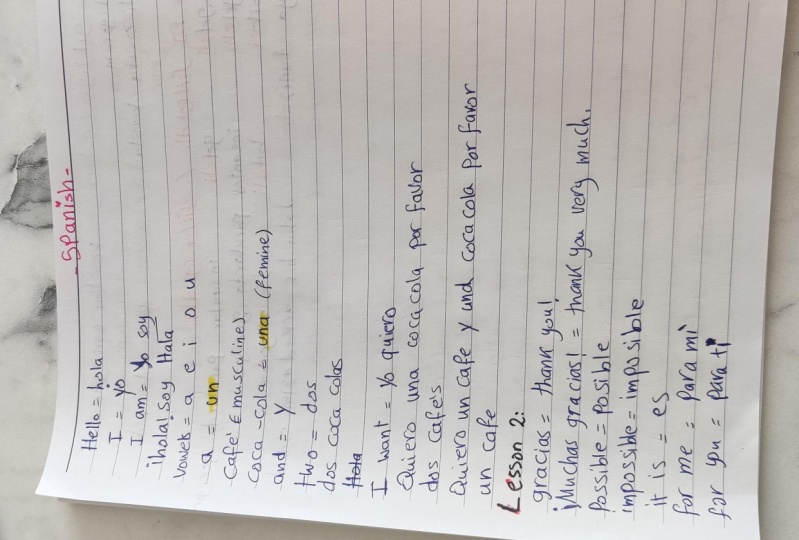 - Spanish -
Hello = hola
I = yo
I am = yo soy
¡hola! soy Hala
vowels = a e i o u
a = un
Cafe' (musculine)
coca-cola = una (femine)
and = y
two = dos
dos coca colas
Hola
I want = yo quiero
Quiero una coca cola por favor
dos cafe's
Quiero un cafe y una coca cola por favor
un cafe
Lesson 2:
gracias = thank you!
¡Muchas gracias! = thank you very much.
Possible = Posible
impossible = imposible
it is = es
for me = para mì
for you = para ti